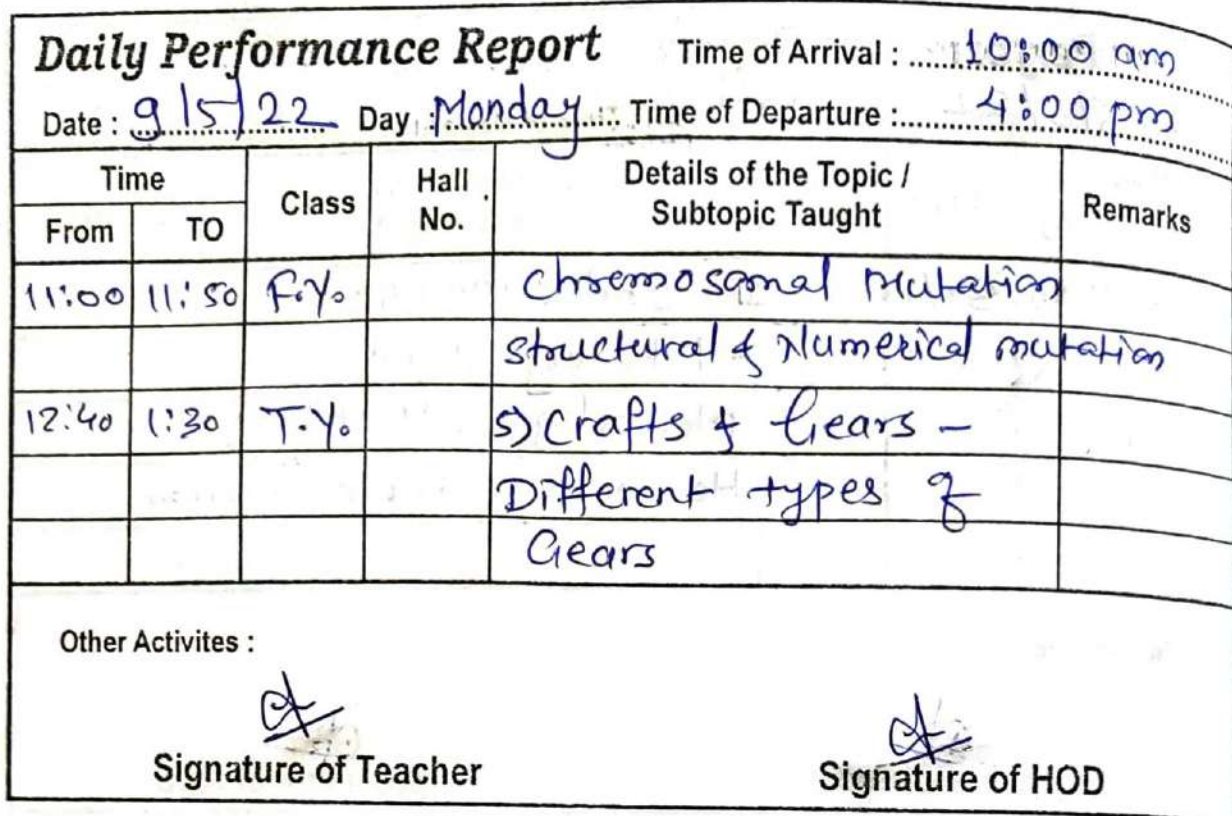 Daily Performance Report Time of Arrival : 10:00 am
Date : 9/5/22 Day : Monday Time of Departure : 4:00 pm
Time Class Hall No. Details of the Topic / Subtopic Taught Remarks
From TO
11:00 11:50 F.Y. Chromosomal Mutation
structural & Numerical mutation
12:40 1:30 T.Y. 5) Crafts & Gears –
Different types of
Gears
Other Activites :
Signature of Teacher Signature of HOD